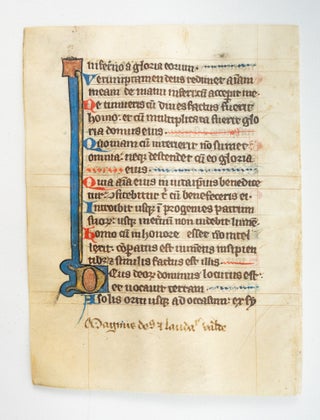 inferno a gloria eorum
Verumptamen deus redimet aīam
meam de manu inferi cū acceperit me
Ne timueris cū dives factus fuerit
homo et cū multiplicata fuerit glo
ria domus eius
Quoniam cū interierit nō sumet
omnia neqz descendet cū eo gloria
eius
Quia aīa eius in vita ipsius benedice
tur
Introibit usqz ī progenies patrum
suorz usqz in eternū non videbit lumē
Homo cū in honore esset nō intel
lexit cōparatus est iumentis insipien
tibz et similis factus est illis
Deus deorz dominus locutus est
et vocavit terram
A solis ortu usqz ad occasum ex sy
Magnus dōs et laudaˡ valde